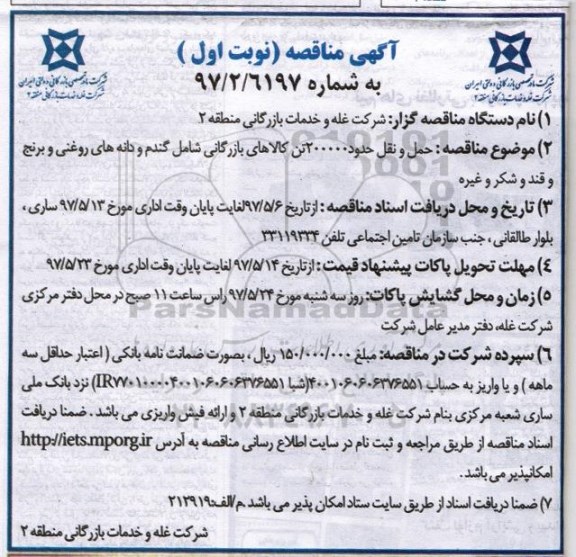 آگهی مناقصه (نوبت اول)
به شماره ۹۷/۲/۶۱۹۷
شرکت مادر تخصصی بازرگانی دولتی ایران
شرکت غله و خدمات بازرگانی منطقه ۲
شرکت مادر تخصصی بازرگانی دولتی ایران
شرکت غله و خدمات بازرگانی منطقه ۲
۱) نام دستگاه مناقصه گزار: شرکت غله و خدمات بازرگانی منطقه ۲
۲) موضوع مناقصه: حمل و نقل حدود ۲۰۰۰۰۰تن کالاهای بازرگانی شامل گندم و دانه های روغنی و برنج
و قند و شکر و غیره
۳) تاریخ و محل دریافت اسناد مناقصه: ازتاریخ ۹۷/۵/۶لغایت پایان وقت اداری مورخ ۹۷/۵/۱۳ ساری ،
بلوار طالقانی ، جنب سازمان تامین اجتماعی تلفن ۳۳۱۱۹۳۳۴
۴) مهلت تحویل پاکات پیشنهاد قیمت: ازتاریخ ۹۷/۵/۱۴ لغایت پایان وقت اداری مورخ ۹۷/۵/۲۳
۵) زمان و محل گشایش پاکات: روز سه شنبه مورخ ۹۷/۵/۲۴ راس ساعت ۱۱ صبح در محل دفتر مرکزی
شرکت غله، دفتر مدیر عامل شرکت
۶) سپرده شرکت در مناقصه: مبلغ ۱۵۰/۰۰۰/۰۰۰ ریال ، بصورت ضمانت نامه بانکی ( اعتبار حداقل سه
ماهه ) و یا واریز به حساب ۴۰۰۱۰۶۰۶۰۶۳۷۶۵۵۱(شبا IR۷۷۰۱۰۰۰۰۴۰۰۱۰۶۰۶۰۶۳۷۶۵۵۱) نزد بانک ملی
ساری شعبه مرکزی بنام شرکت غله و خدمات بازرگانی منطقه ۲ و ارائه فیش واریزی می باشد . ضمنا دریافت
اسناد مناقصه از طریق مراجعه و ثبت نام در سایت اطلاع رسانی مناقصه به آدرس http://iets.mporg.ir
امکانپذیر می باشد.
۷) ضمنا دریافت اسناد از طریق سایت ستاد امکان پذیر می باشد .م/الف:۲۱۲۹۱۹
شرکت غله و خدمات بازرگانی منطقه ۲
ParsNamadData